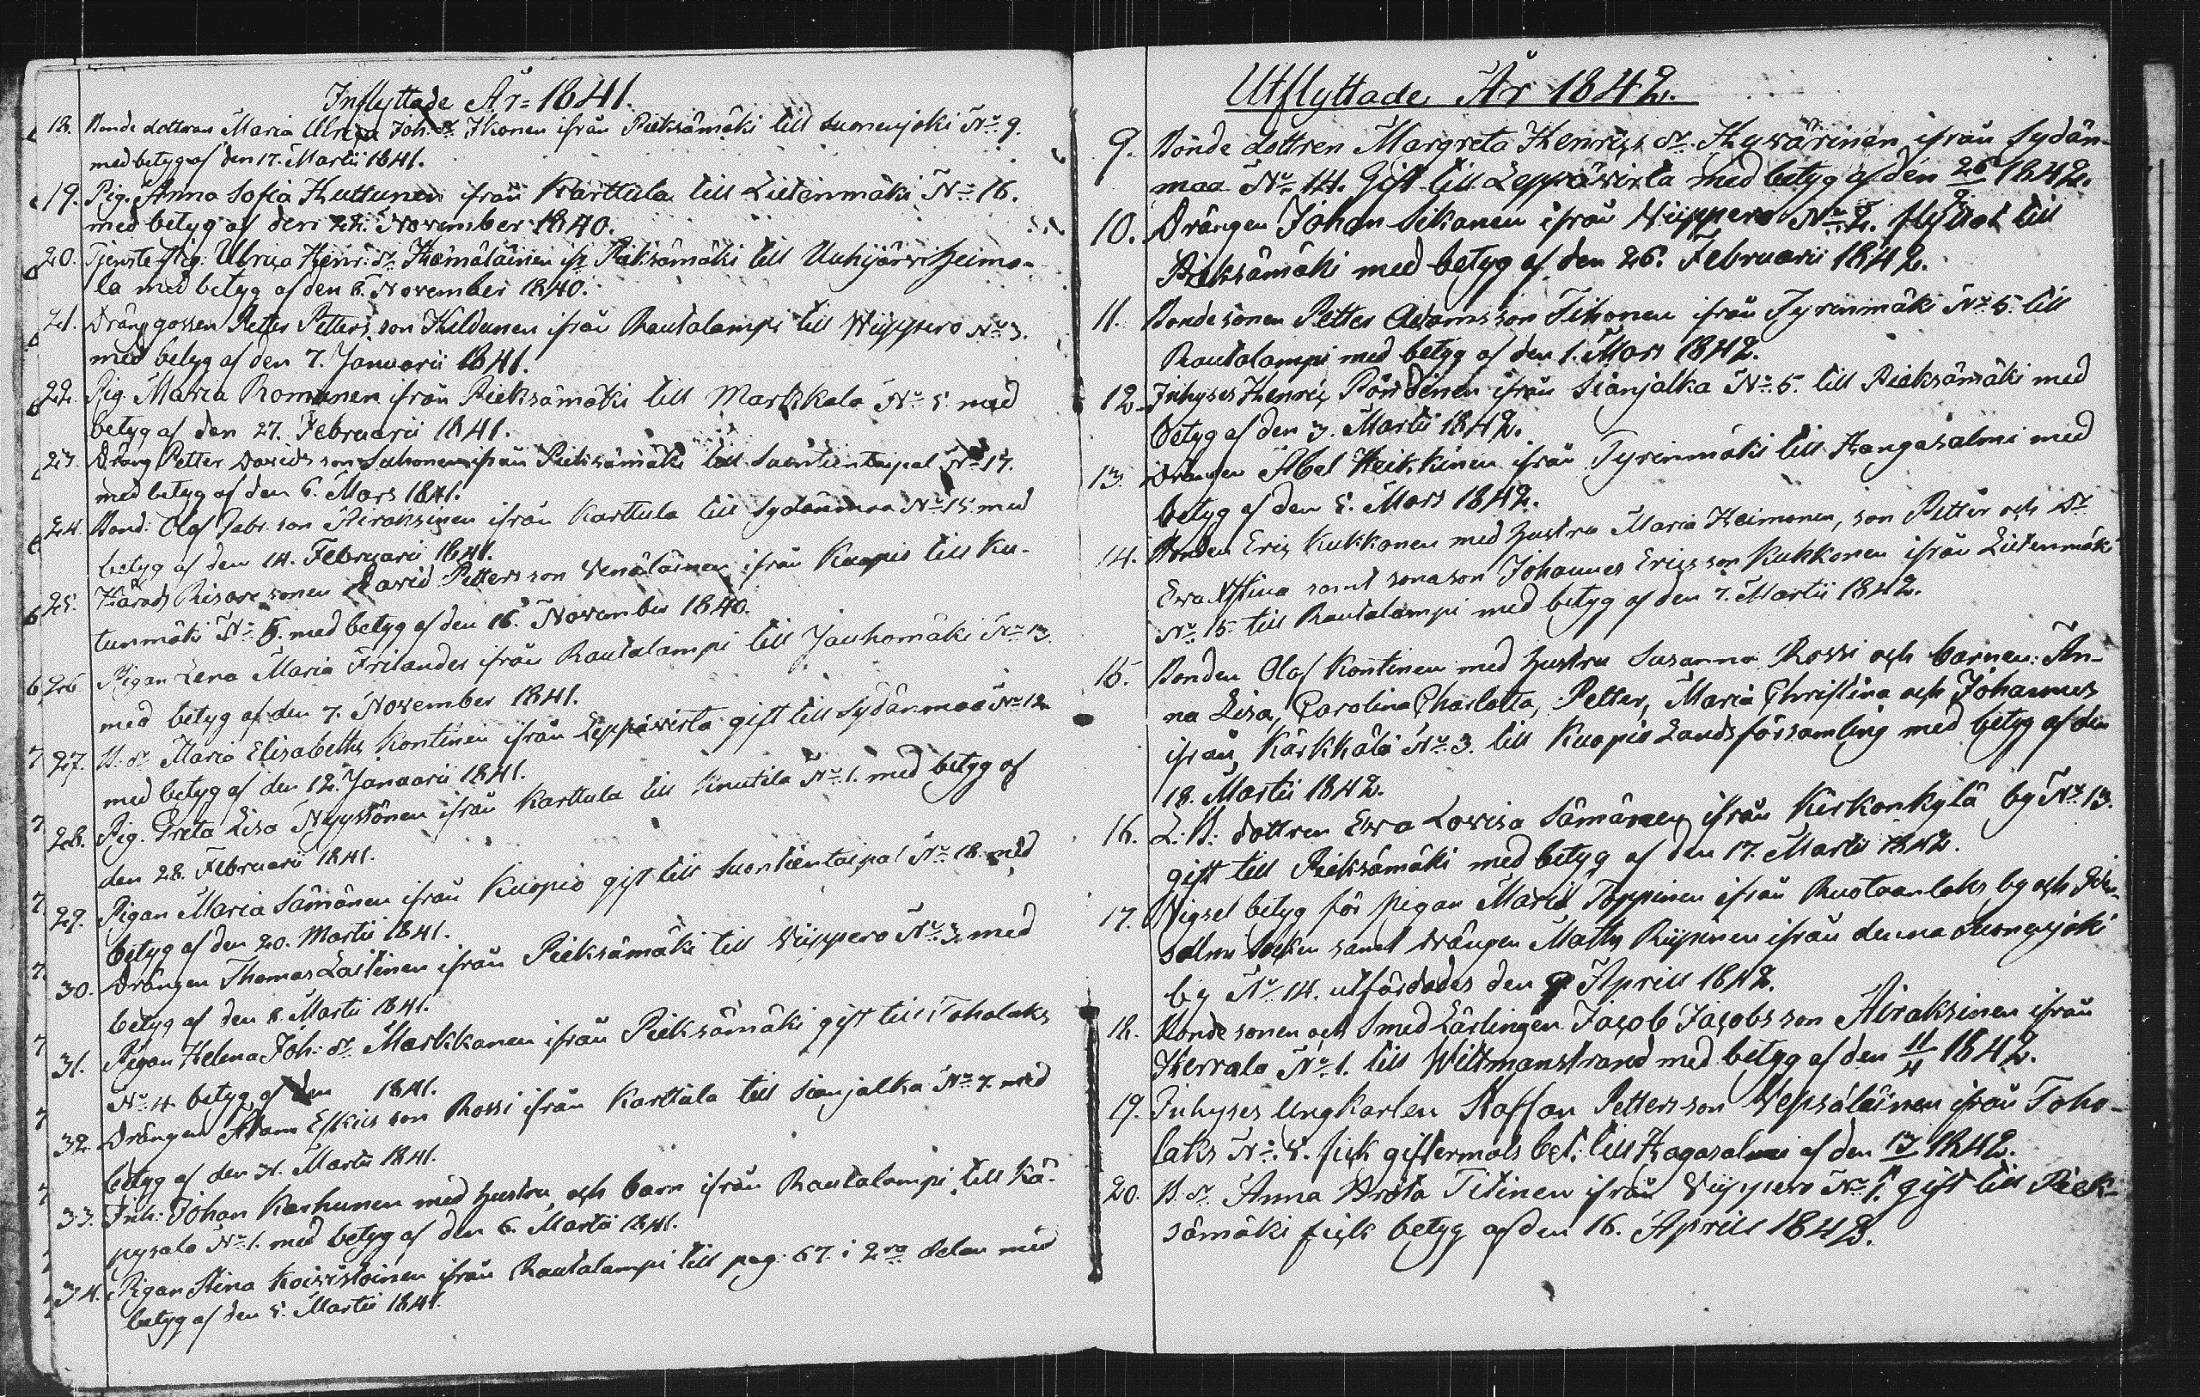 Inflyttade År 1841.
18. Bonde dottren Maria Ulrica Joh: dr. Ikonen ifrån Pieksämäki till Suonenjoki No 9.
med betyg af den 17. Martii 1841.
19. Pig. Anna Sofia Huttunen ifrån Karttula till Lietenmäki No 16.
med betyg af den 22. November 1840.
20. Tjenste Pig: Ulrica Henr: dr. Hämäläinen ifr Pieksämäki till Uuhijärvi Heimo-
la med betyg af den 8. November 1840.
21. Dräng gossen Petter Petters son Haldunen ifrån Rautalampi till Wiippero No 3.
med betyg af den 7. Januarii 1841.
22. Pig. Maria Romunen ifrån Pieksämäki till Markkala No 5. med
betyg af den 27. Februarii 1841.
23. Dräng Petter Davids son Suhonen ifrån Pieksämäki till Suontientaipal No 17.
med betyg af den 6. Mars 1841.
24. Bond: Olof Gabr: son Airaksinen ifrån Karttula till Sydänmaa No 15. med
betyg af den 14. Februarii 1841.
25. Härads Risare sonen David Petters son Venäläinen ifrån Kuopio till Ku-
tunmäki No 5. med betyg af den 16. November 1840.
26. Pigan Lena Maria Frilander ifrån Rautalampi till Jauhomäki No 13.
med betyg af den 7. November 1841.
27. B: dr. Maria Elisabeth Kontinen ifrån Leppävirta gift till Sydänmaa No 12
med betyg af den 12. Januarii 1841.
28. Pig. Greta Lisa Nyyssönen ifrån Karttula till Knutila No 1. med betyg af
den 28. Februarii 1841.
29. Pigan Maria Sämänen ifrån Kuopio gift till Suontientaipal No 18. med
betyg af den 20. Martii 1841.
30. Drängen Thomas Laitinen ifrån Pieksämäki till Wiippero No 3. med
betyg af den 8. Martii 1841.
31. Pigan Helena Joh: dr. Markkanen ifrån Pieksämäki gift till Toholaks
No 4. betyg af den 1841.
32. Drängen Adam Eskils son Rossi ifrån Karttula till Sianjalka No 7. med
betyg af den 31. Martii 1841.
33. Inh: Johan Karhunen med hustru och barn ifrån Rautalampi till Kä-
pysalo No 1. med betyg af den 6. Martii 1841.
34. Pigan Stina Koivistoinen ifrån Rautalampi till pag: 67. i 2ra delen med
betyg af den 5. Martii 1841.
Utflyttade År 1842.
9. Bonde dottren Margreta Henrics dr. Hyvärinen ifrån Sydän-
maa No 14. Gift till Leppävirta med betyg af den 26/2 1842.
10. Drängen Johan Sekanen ifrån Wiippero No 2. flyttat till
Pieksämäki med betyg af den 26. Februarii 1842.
11. Bonde sonen Petter Adamsson Tihonen ifrån Tyrinmäki No 5. till
Rautalampi med betyg af den 1. Mars 1842.
12. Inhyses Henric Pöndinen ifrån Sianjalka No 5. till Pieksämäki med
betyg af den 3. Martii 1842.
13. Drängen Abel Heikkinen ifrån Tyrinmäki till Hangasalmi med
betyg af den 5. Mars 1842.
14. Bonden Eric Kukkonen med hustru Maria Heimonen, son Petter och dr.
Eva Stina samt sonason Johannes Ericsson Kukkonen ifrån Lietenmäki
No 15. till Rautalampi med betyg af den 7. Martii 1842.
15. Bonden Olof Kontinen med hustru Susanna Rossi och barnen: An-
na Lisa, Carolina Charlotta, Petter, Maria Christina och Johannes
ifrån Kärkkälä No 3. till Kuopio Landsförsamling med betyg af den
18. Martii 1842.
16. L: B: dottren Eva Lovisa Sämänen ifrån Kirkonkylä by No 13.
gift till Pieksämäki med betyg af den 17. Martii 1842.
17. Vigsel betyg för pigan Maria Toppinen ifrån Ruotaanlaks by och
salmi Socken samt drängen Matts Riipinen ifrån denna Suonenjoki
by No 14. utfärdades den 9 April 1842.
18. Bonde sonen och Smed Lärlingen Jacob Jacobs son Airaksinen ifrån
Herrala No 1. till Willmanstrand med betyg af den 11/4 1842.
19. Inhyses Ungkarlen Staffan Petters son Vepsäläinen ifrån Toho-
laks No 8. fick giftermåls bet: till Hagasalmi af den 13/4 1842.
20. B. dr. Anna Brita Titinen ifrån Wiippero No 1. gift till Piek-
sämäki fick betyg af den 16. April 1842.